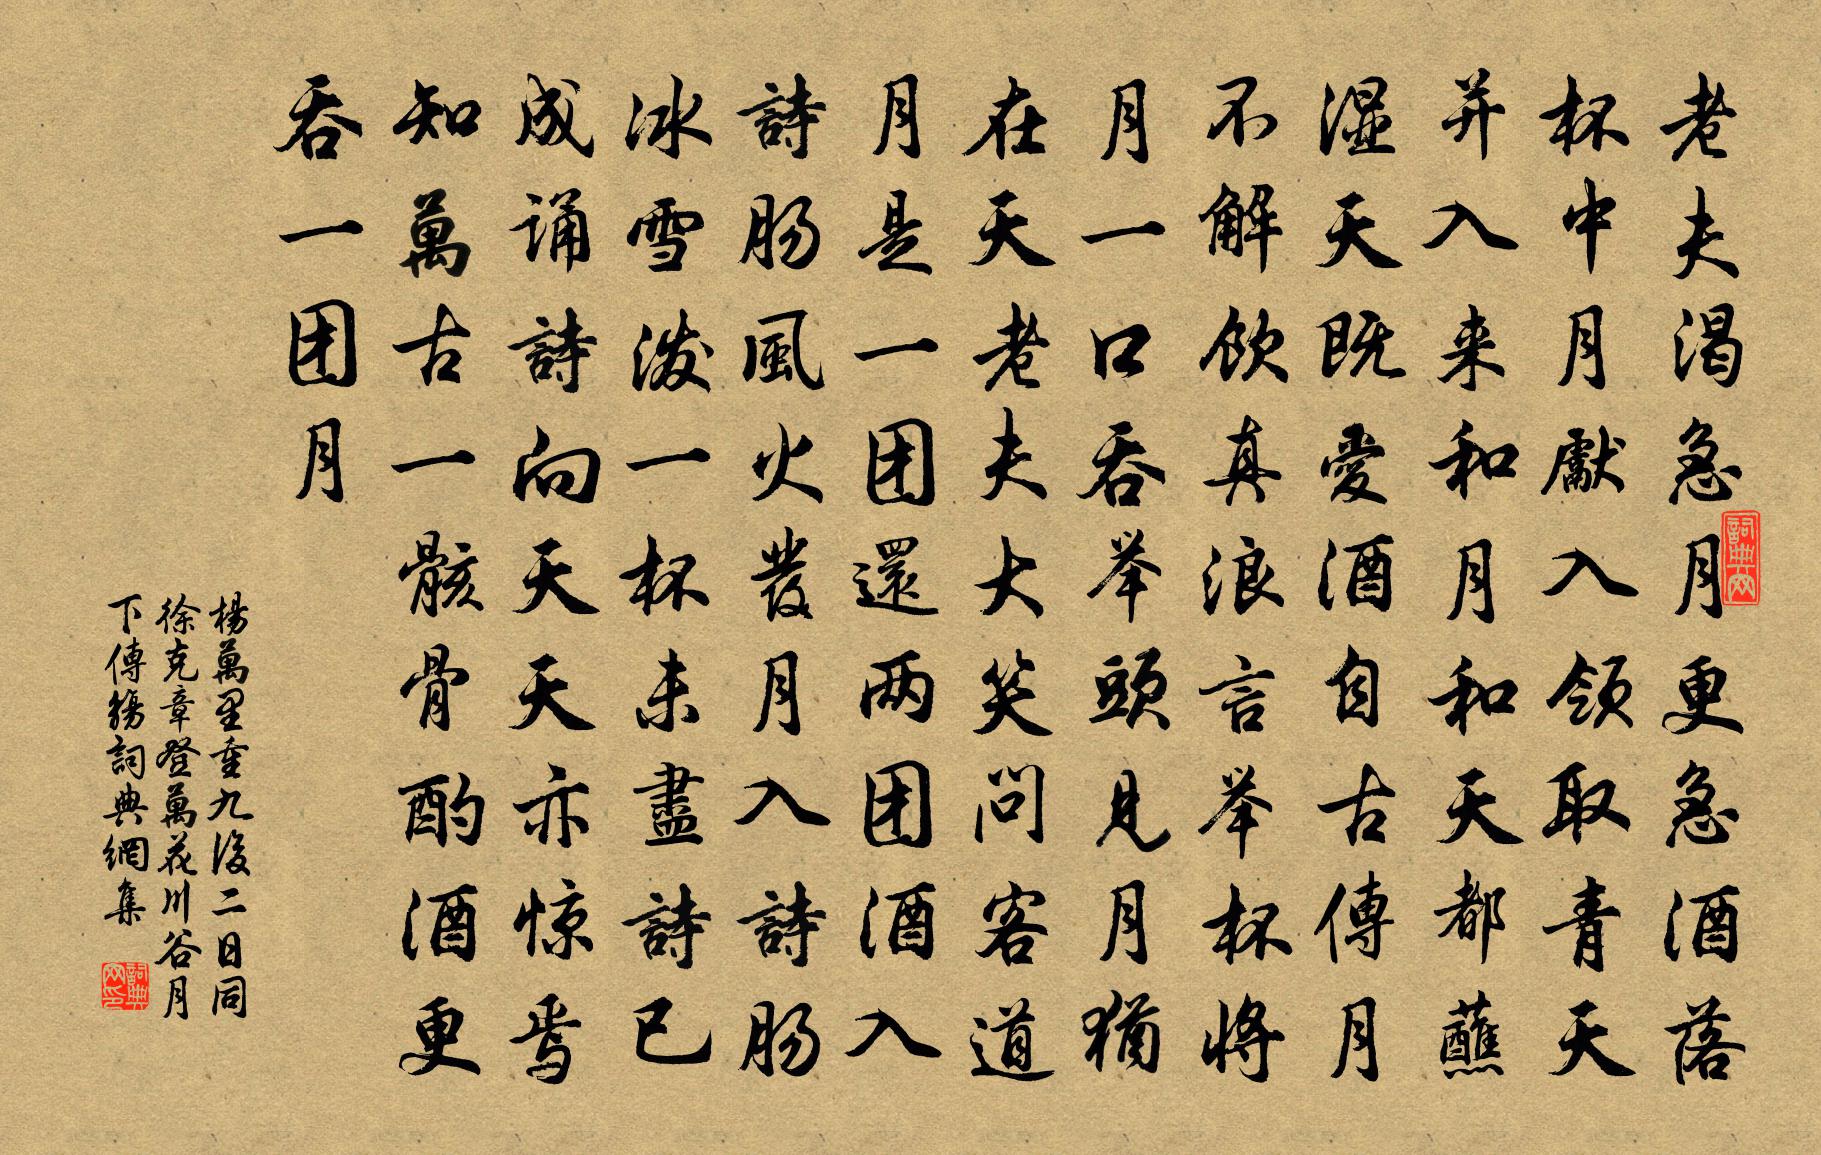 老夫渴急月更急酒落
杯中月獻入领取青天
并入来和月和天都蘸
湿天既愛酒自古傳月
不解飲真浪言举杯將
月一口吞举頭見月猶
在天老夫大笑問客道
月是一团還两团酒入
詩肠風火發月入詩肠
冰雪泼一杯未盡詩已
成诵詩向天天亦惊焉
知萬古一骸骨酌酒更
吞一团月
楊萬里重九後二日同
徐克章登萬花川谷月
下傳觴詞典網集
詞典网
詞典网印